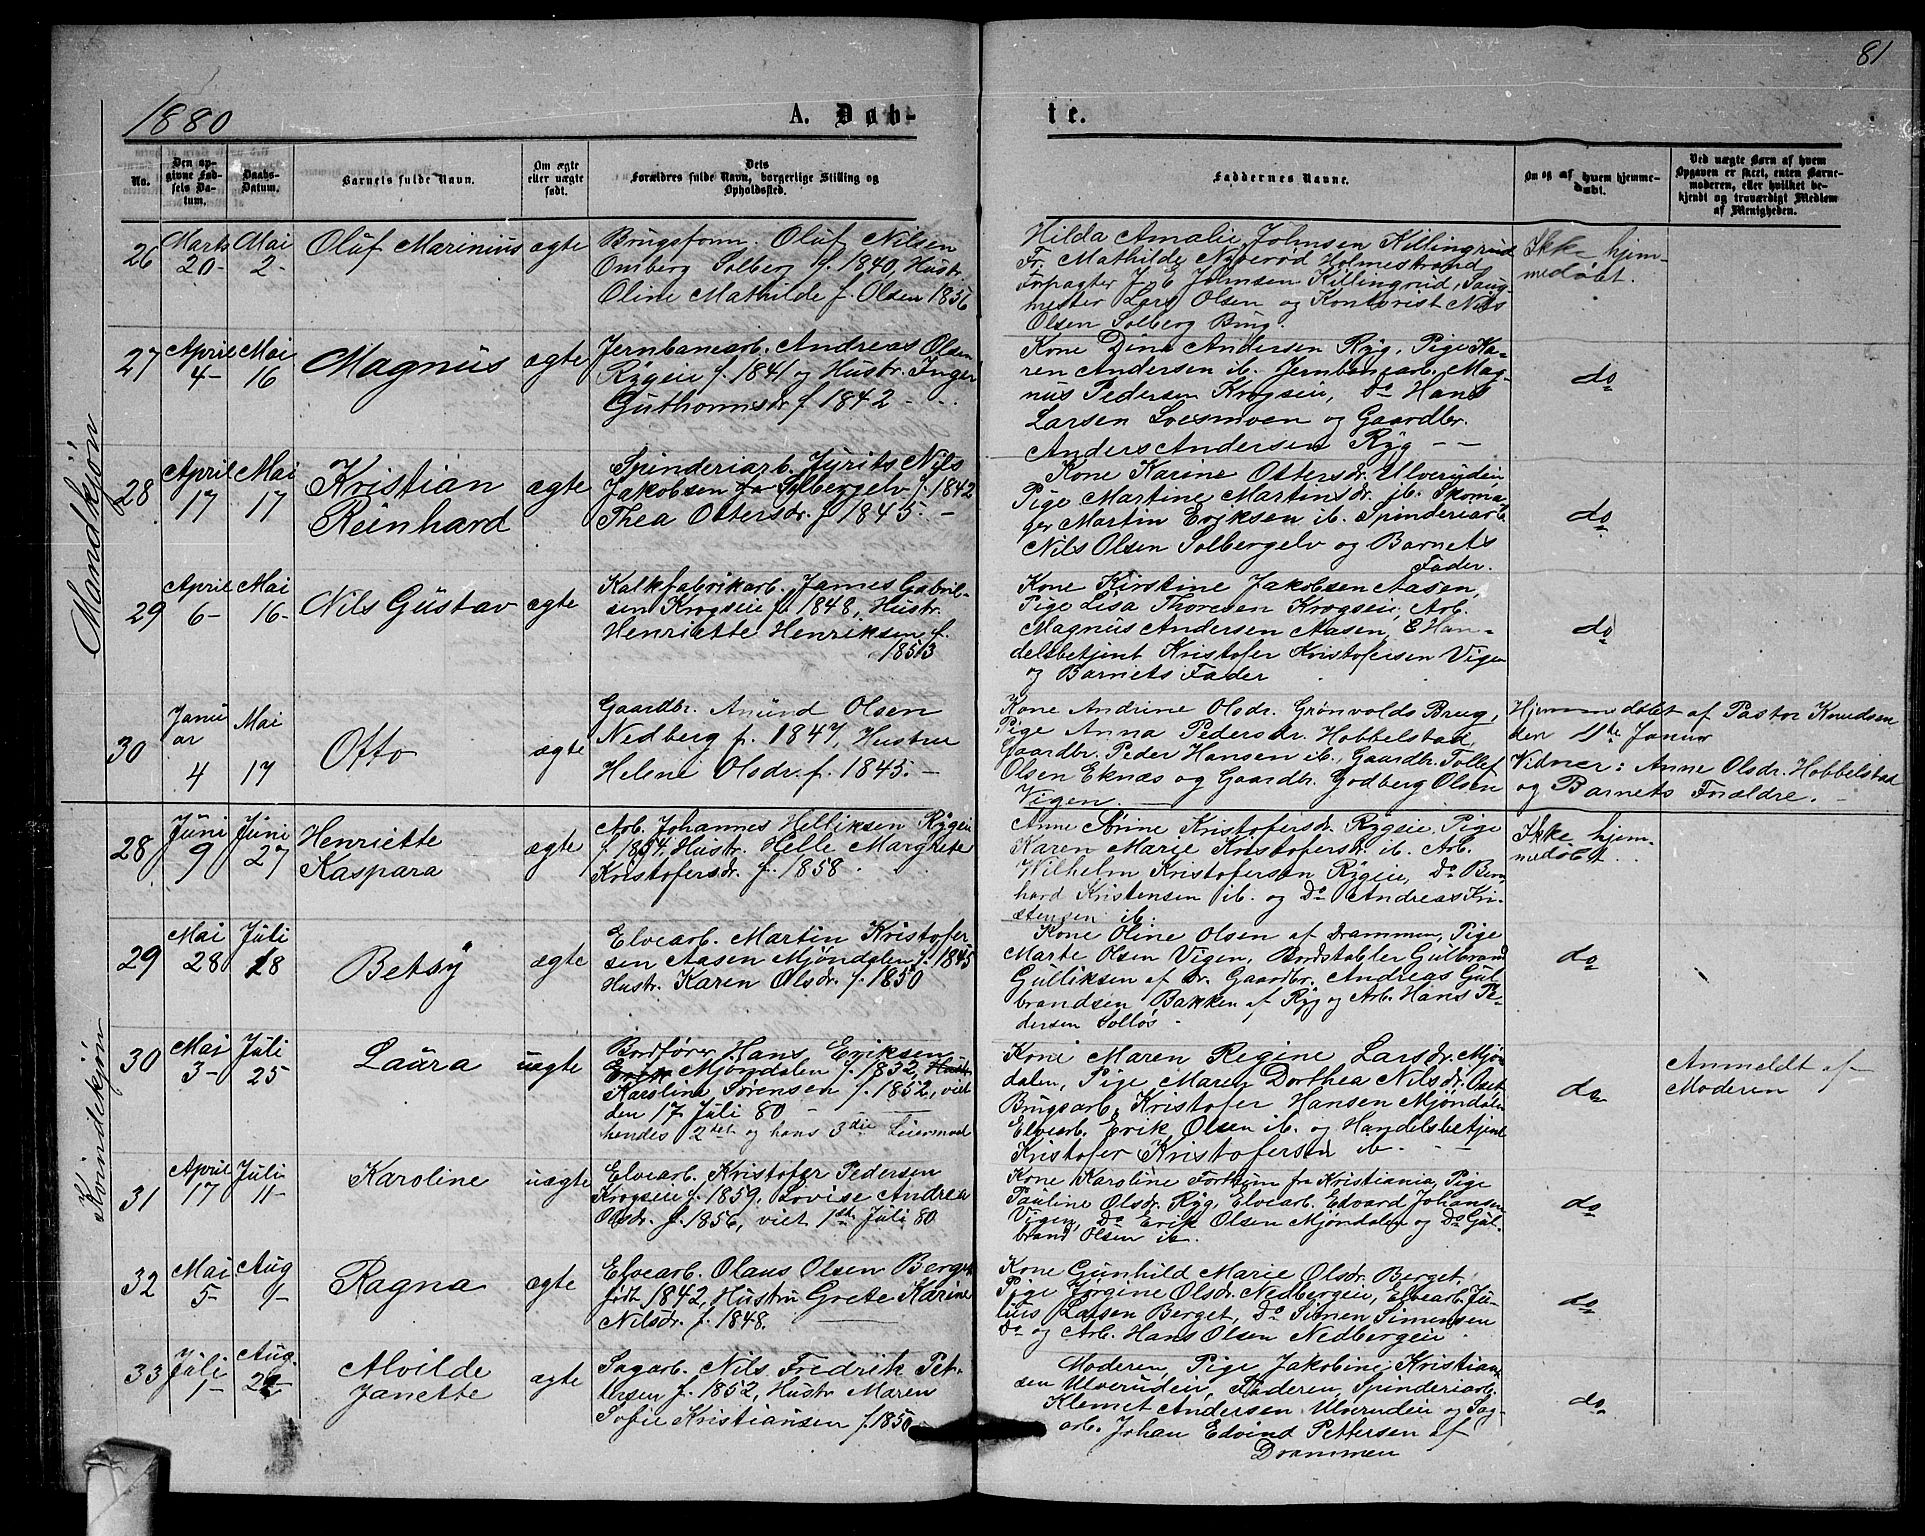 81
1880
A. Døb-
te.
No.
Den op-
givne Fød-
sels Da-
tum.
Daabs-
Datum.
Barnets fulde Navn.
Om ægte
eller uægte
født.
Dets
Forældres fulde Navn, borgerlige Stilling og
Opholdssted.
Faddernes Navne.
Om og af hvem hjemme-
døbt.
Ved uægte Børn af hvem
Opgaven er skeet, enten Barne-
moderen, eller hvilket be-
kjendt og troværdigt Medlem
af Menigheden.
Mandkjön
26
Marts
20-
Mai
2-
Oluf Marinius
ægte
Brugsform. Oluf Nilsen
Omberg Solberg f. 1840, Hustr.
Oline Mathilde f. Olsen 1856
Hilda Amalie Johnsen Killingrud
Fr. Mathilde Nyberød Holmestrand
Forpagter J. E. Johnsen Killingrud, Saug-
mester Lars Olsen og Kontorist Nils
Olsen Solberg Brug.
Ikke hjem-
medøbt.
27
April
4-
Mai
16
Magnus
ægte
Jernbanearb. Andreas Olsen
Rygeie f. 1841 og Hustr. Inger
Guthormsdr. f. 1842 - -
Kone Dina Andersen Ryg, Pige Ka-
ren Andersen ib. Jernbanearb. Mag-
nus Pedersen Krogseie, Do Hans
Larsen Loesmoen og Gaardbr.
Anders Andersen Ryg - -
do
28
April
17
Mai
17
Kristian
Reinhard
ægte
Spinderiarb. Jurits Nils
Jakobsen Solbergelv f. 1842
Thea Ottersdr. f 1845. -
Kone Karine Ottersdr. Ulverudeie
Pige Martine Martinsdr. ib. Skoma-
ger Martin Eriksen ib. Spinderiarb.
Nils Olsen Solbergelv og Barnets
Fader.
do
29
April
6-
Mai
16-
Nils Gustav
ægte
Kalkfabrikarb. James Gabriel-
sen Krogseie f. 1848, Hustr.
Henriette Henriksen f.
1853
Kone Kirstine Jakobsen Aasen,
Pige Lisa Thoresen Krogseie, Arb.
Magnus Andersen Aasen, Han-
delsbetjent Kristofer Kristofersen Vigen
og Barnets Fader
do
30
Janu
ar
4
Mai
17
Otto
ægte
Gaardbr. Amund Olsen
Nedberg f. 1847, Hustru
Helene Olsdr. f. 1845. -
Kone Andrine Olsdr. Grønvolds Brug,
Pige Anna Pedersdr. Hobbelstad,
Gaardbr. Peder Hansen ib., Gaardbr. Tollef
Olsen Eknæs og Gaardbr. Godberg Olsen
Vigen.
Hjemmedøbt af Pastor Knudsen
den 11te Januar
Vidner: Anne Olsdr. Hobbelstad
og Barnets Forældre. -
Kvindekjön
28
Juni
9
Juni
27
Henriette
Kaspara
ægte
Arb. Johannes Helliksen Rygeie
f. 1854, Hustr. Helle Margrete
Kristofersdr. f. 1858.
Anne Sørine Kristofersdr. Rygseie, Pige
Karen Marie Kristofersdr. ib. Arb.
Wilhelm Kristofersen Rygeie, Do Bern-
hard Kristensen ib. og Do Andreas Kri-
stensen ib.
Ikke hjem-
medøbt.
29
Mai
28
Juli
18
Betsy
ægte
Elvearb. Martin Kristofer
sen Aasen Mjöndalen f. 1845
Hustr. Karen Olsdr. f. 1850
Kone Oline Olsen af Drammen, Pige
Marte Olsen Vigen, Bordstabler Gulbrand
Gulliksen af Dr. Gaardbr. Andreas Gul-
brandsen Bakken af Ryg og Arb. Hans Pe-
dersen Solløs -
do
30
Mai
3-
Juli
25
Laura
uægte
Bordfører Hans Eriksen
Mjöndalen f. 1832,
Karoline Sørensen f. 1852, viet
den 17 Juli 80 -
hendes 2det og hans 3die Leiermaal
Kone Maren Regine Larsdr. Mjön-
dalen, Pige Maren Dorthea Nilsdr. Oset
Brugsarb. Kristofer Hansen Mjöndalen
Elvearb. Erik Olsen ib. og Handelsbetjent
Kristofer Kristofersen ib. -
do
Anmeldt af
Moderen
31
April
17
Juli
11-
Karoline
uægte
Elvearb. Kristofer Pedersen
Krogseie f. 1859. Lovise Andrea
Olsdr. f. 1856, viet 1ste Juli 80
Kone Karoline fra Kristiania, Pige
Pauline Olsdr. Ryg, Elvearb. Edvard Johansen
Vigen, Do Erik Olsen Mjöndalen og Do Gul-
brand Olsen ib.
do
32
Mai
5-
Aug
1-
Ragna
ægte
Elvearb. Olaus Olsen Berget
født 1842, Hustru Grete Karine
Nilsdr. f. 1848.
Kone Gunhild Marie Olsdr. Berget,
Pige Jorgine Olsdr. Nedbergeie, Elvearb. Ju-
lius Larsen Berget, Do Simen Simensen
Do og Arb. Hans Olsen Nedbergeie
do
33
Juli
1-
Aug.
Alvilde
Janette
ægte
Sagarb. Nils Fredrik Pet-
tersen f. 1852, Hustr Maren
Sofie Kristiansen f. 1850
Moderen, Pige Jakobine Kristian-
sen Ulverudeie, Faderen, Spinderiarb.
Klemet Andersen Ulverudeie og Sag-
arb. Johan Edvind Pettersen af
Drammen
do